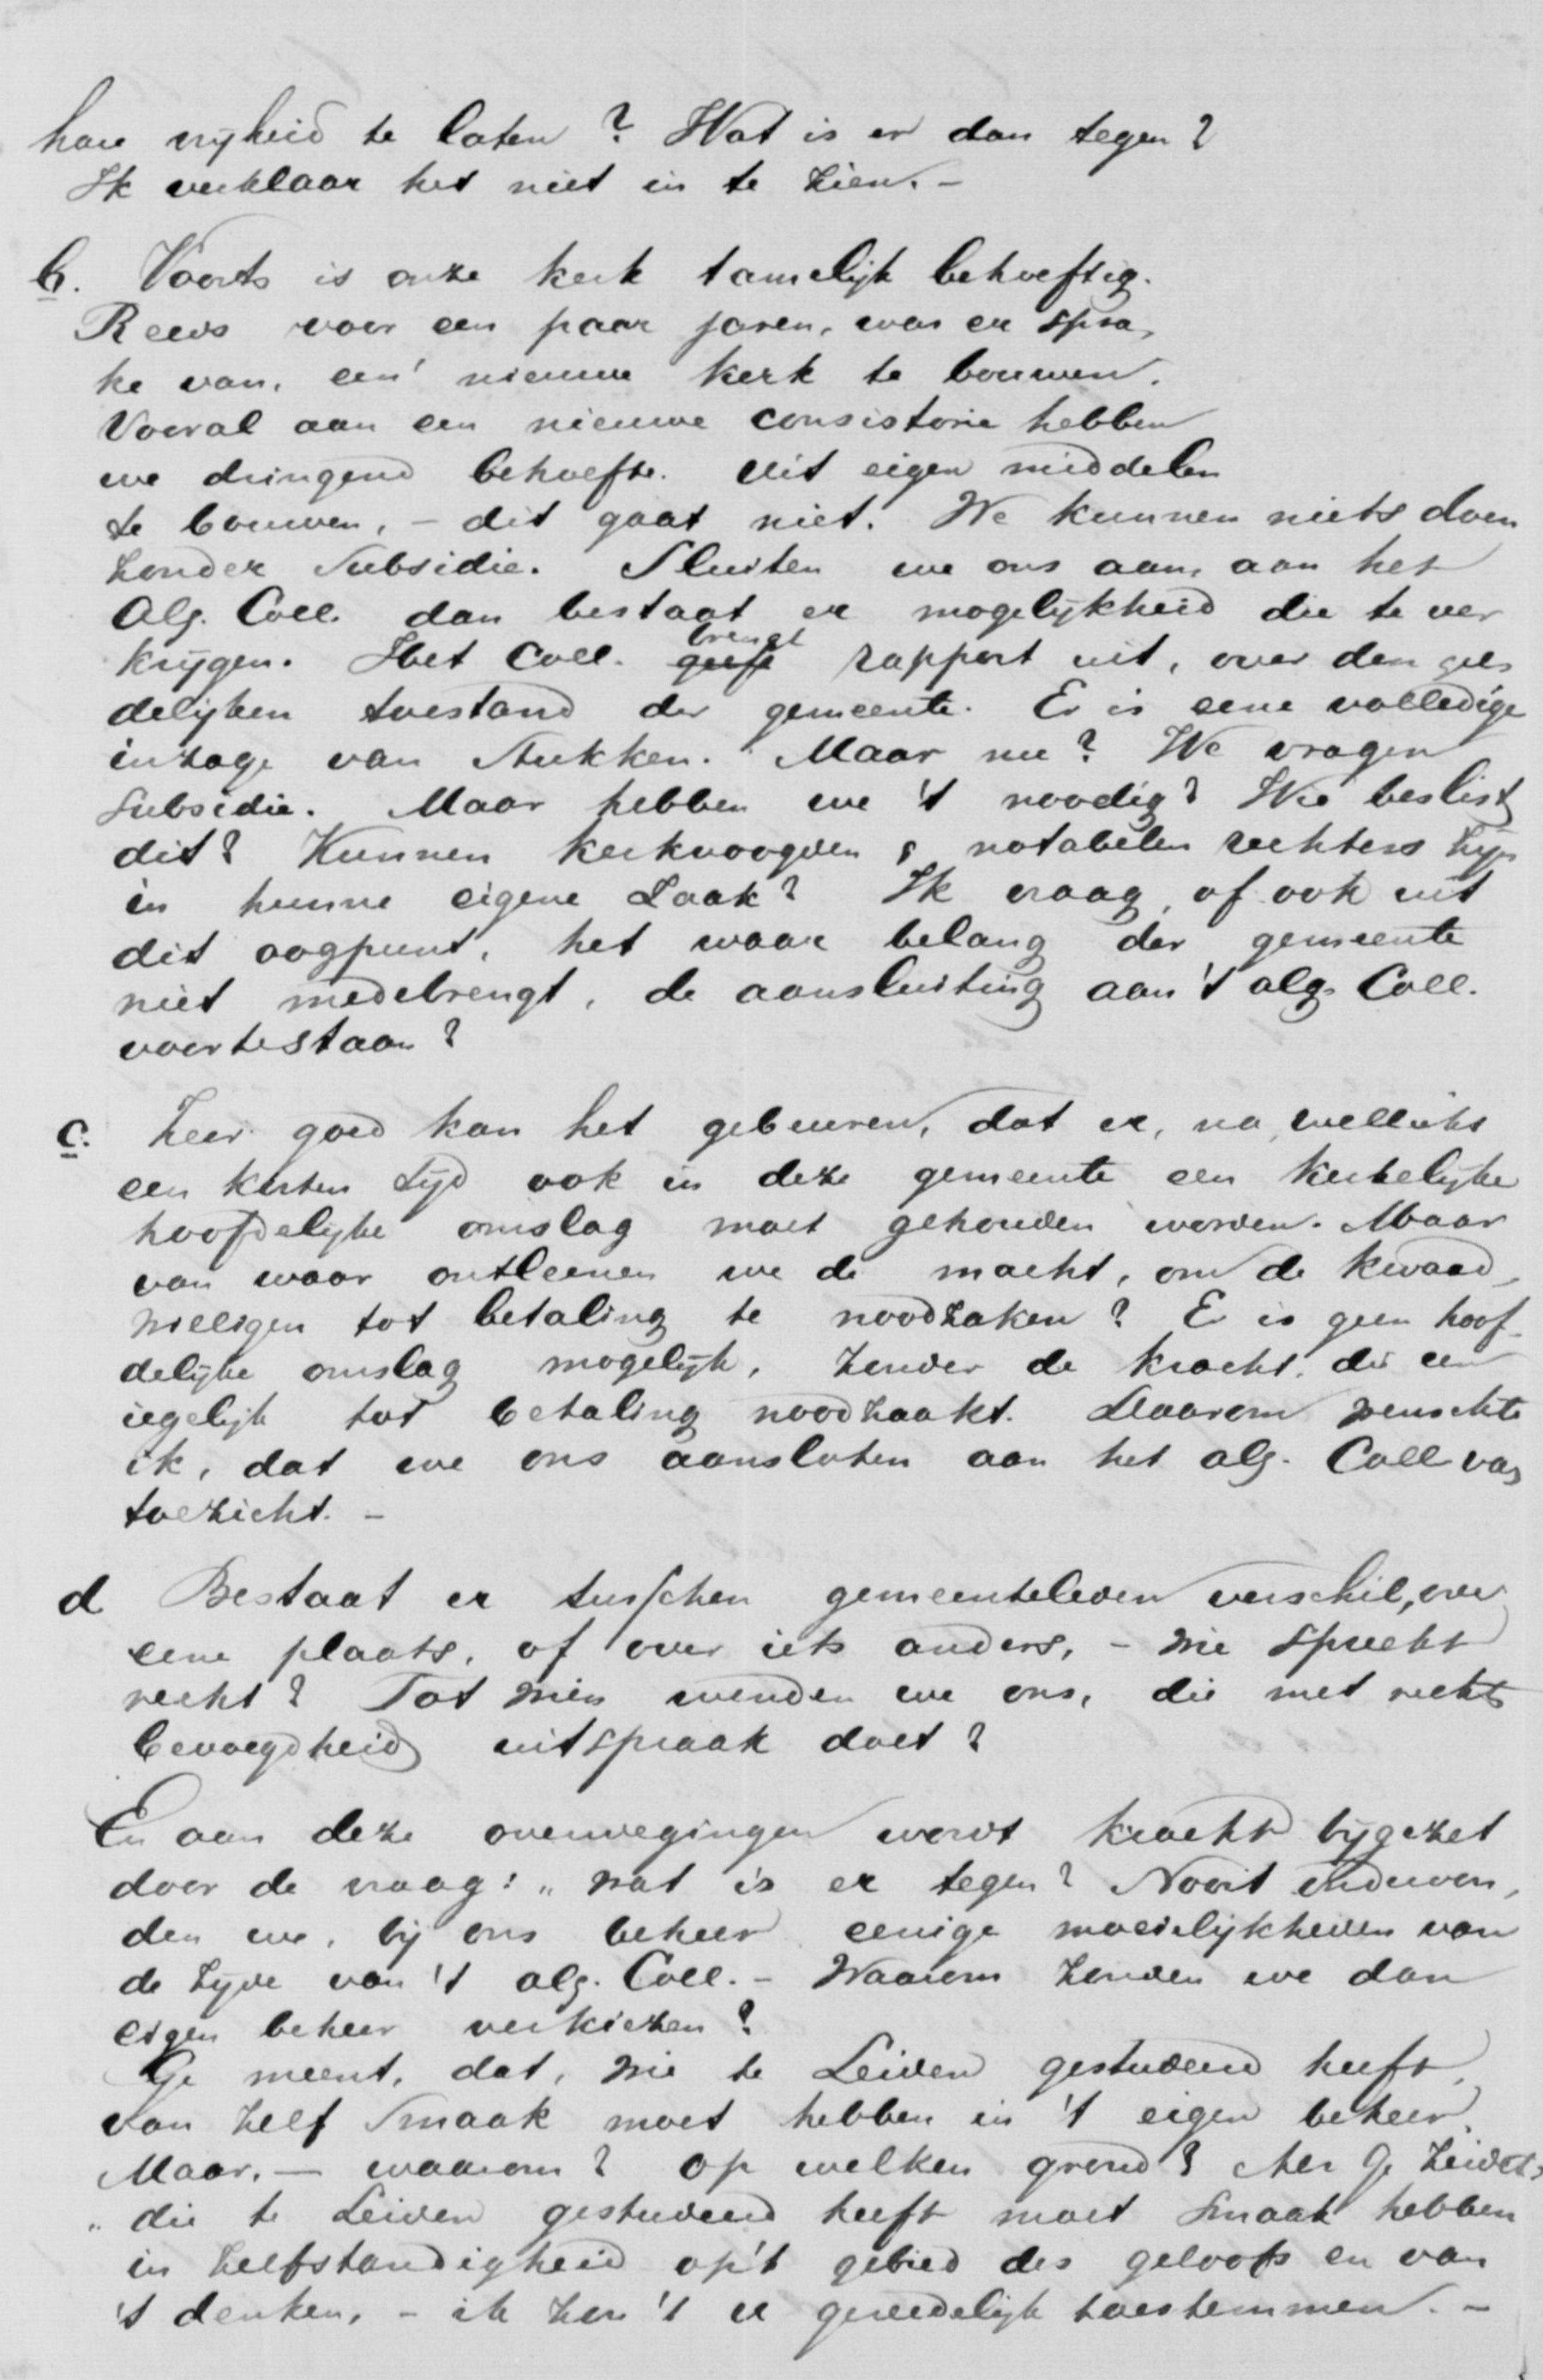 hare vrijheid te laten? Wat is er dan tegen?
Ik verklaar het niet in te zien. -
b. Voorts is onze kerk tamelijk behoeftig.
Reeds voor een paar jaren, was er spra,
ke van, een' nieuwe kerk te bouwen.
Vooral aan een nieuwe consistorie hebben
we dringend behoefte. Uit eigen middelen
te bouwen, - dit gaat niet. We kunnen niets doen
zonder subsidie. Sluiten we ons aan, aan het
Alg. Coll. dan bestaat er mogelijkheid die te ver
krijgen. Het Coll. geeft brengt rapport uit, over den gel,
delijken toestand der gemeente. Er is eene volledige
inzage van stukken. Maar nu? We vragen
subsidie. Maar hebben we 't noodig? Wie beslist
dit? Kunnen kerkvoogden & notabelen rechters zijn
in hunne eigene zaak? Ik vraag, of ook uit
dit oogpunt, het waar belang der gemeente
niet medebrengt, de aansluiting aan 't alg. Coll.
voortestaan?
c. Zeer goed kan het gebeuren, dat er, na, wellicht
een korten tijd ook in deze gemeente een kerkelijke
hoofdelijke omslag moet gehouden worden. Maar
van waar ontleenen we de macht, om de kwaad,
willigen tot betaling te noodzaken? Er is geen hoof-
delijke omslag mogelijk, zonder de kracht, die een
iegelijk tot betaling noodzaakt. Daarom wenschte
ik, dat we ons aansloten aan het alg. Coll van
toezicht. -
d Bestaat er tusschen gemeenteleden verschil, over
eene plaats, of over iets anders, - wie spreekt
recht? Tot wien wenden we ons, die met rechts
bevoegdheid uitspraak doet?
En aan deze overwegingen wordt kracht bijgezet
door de vraag: „wat is er tegen? Nooit ondervon,
den we, bij ons beheer eenige moeielijkheden van
de zijde van 't alg. Coll. - Waarom zouden we dan
eigen beheer verkiezen?
Ge meent, dat, wie te Leiden gestudeerd heeft,
van zelf smaak moet hebben in 't eigen beheer.
Maar, - waarom? Op welken grond? Als Ge zeidet,
„die te Leiden gestudeerd heeft moet smaak hebben
in zelfstandigheid op 't gebied des geloofs en van
't denken, - ik zou 't U gereedelijk toestemmen. -